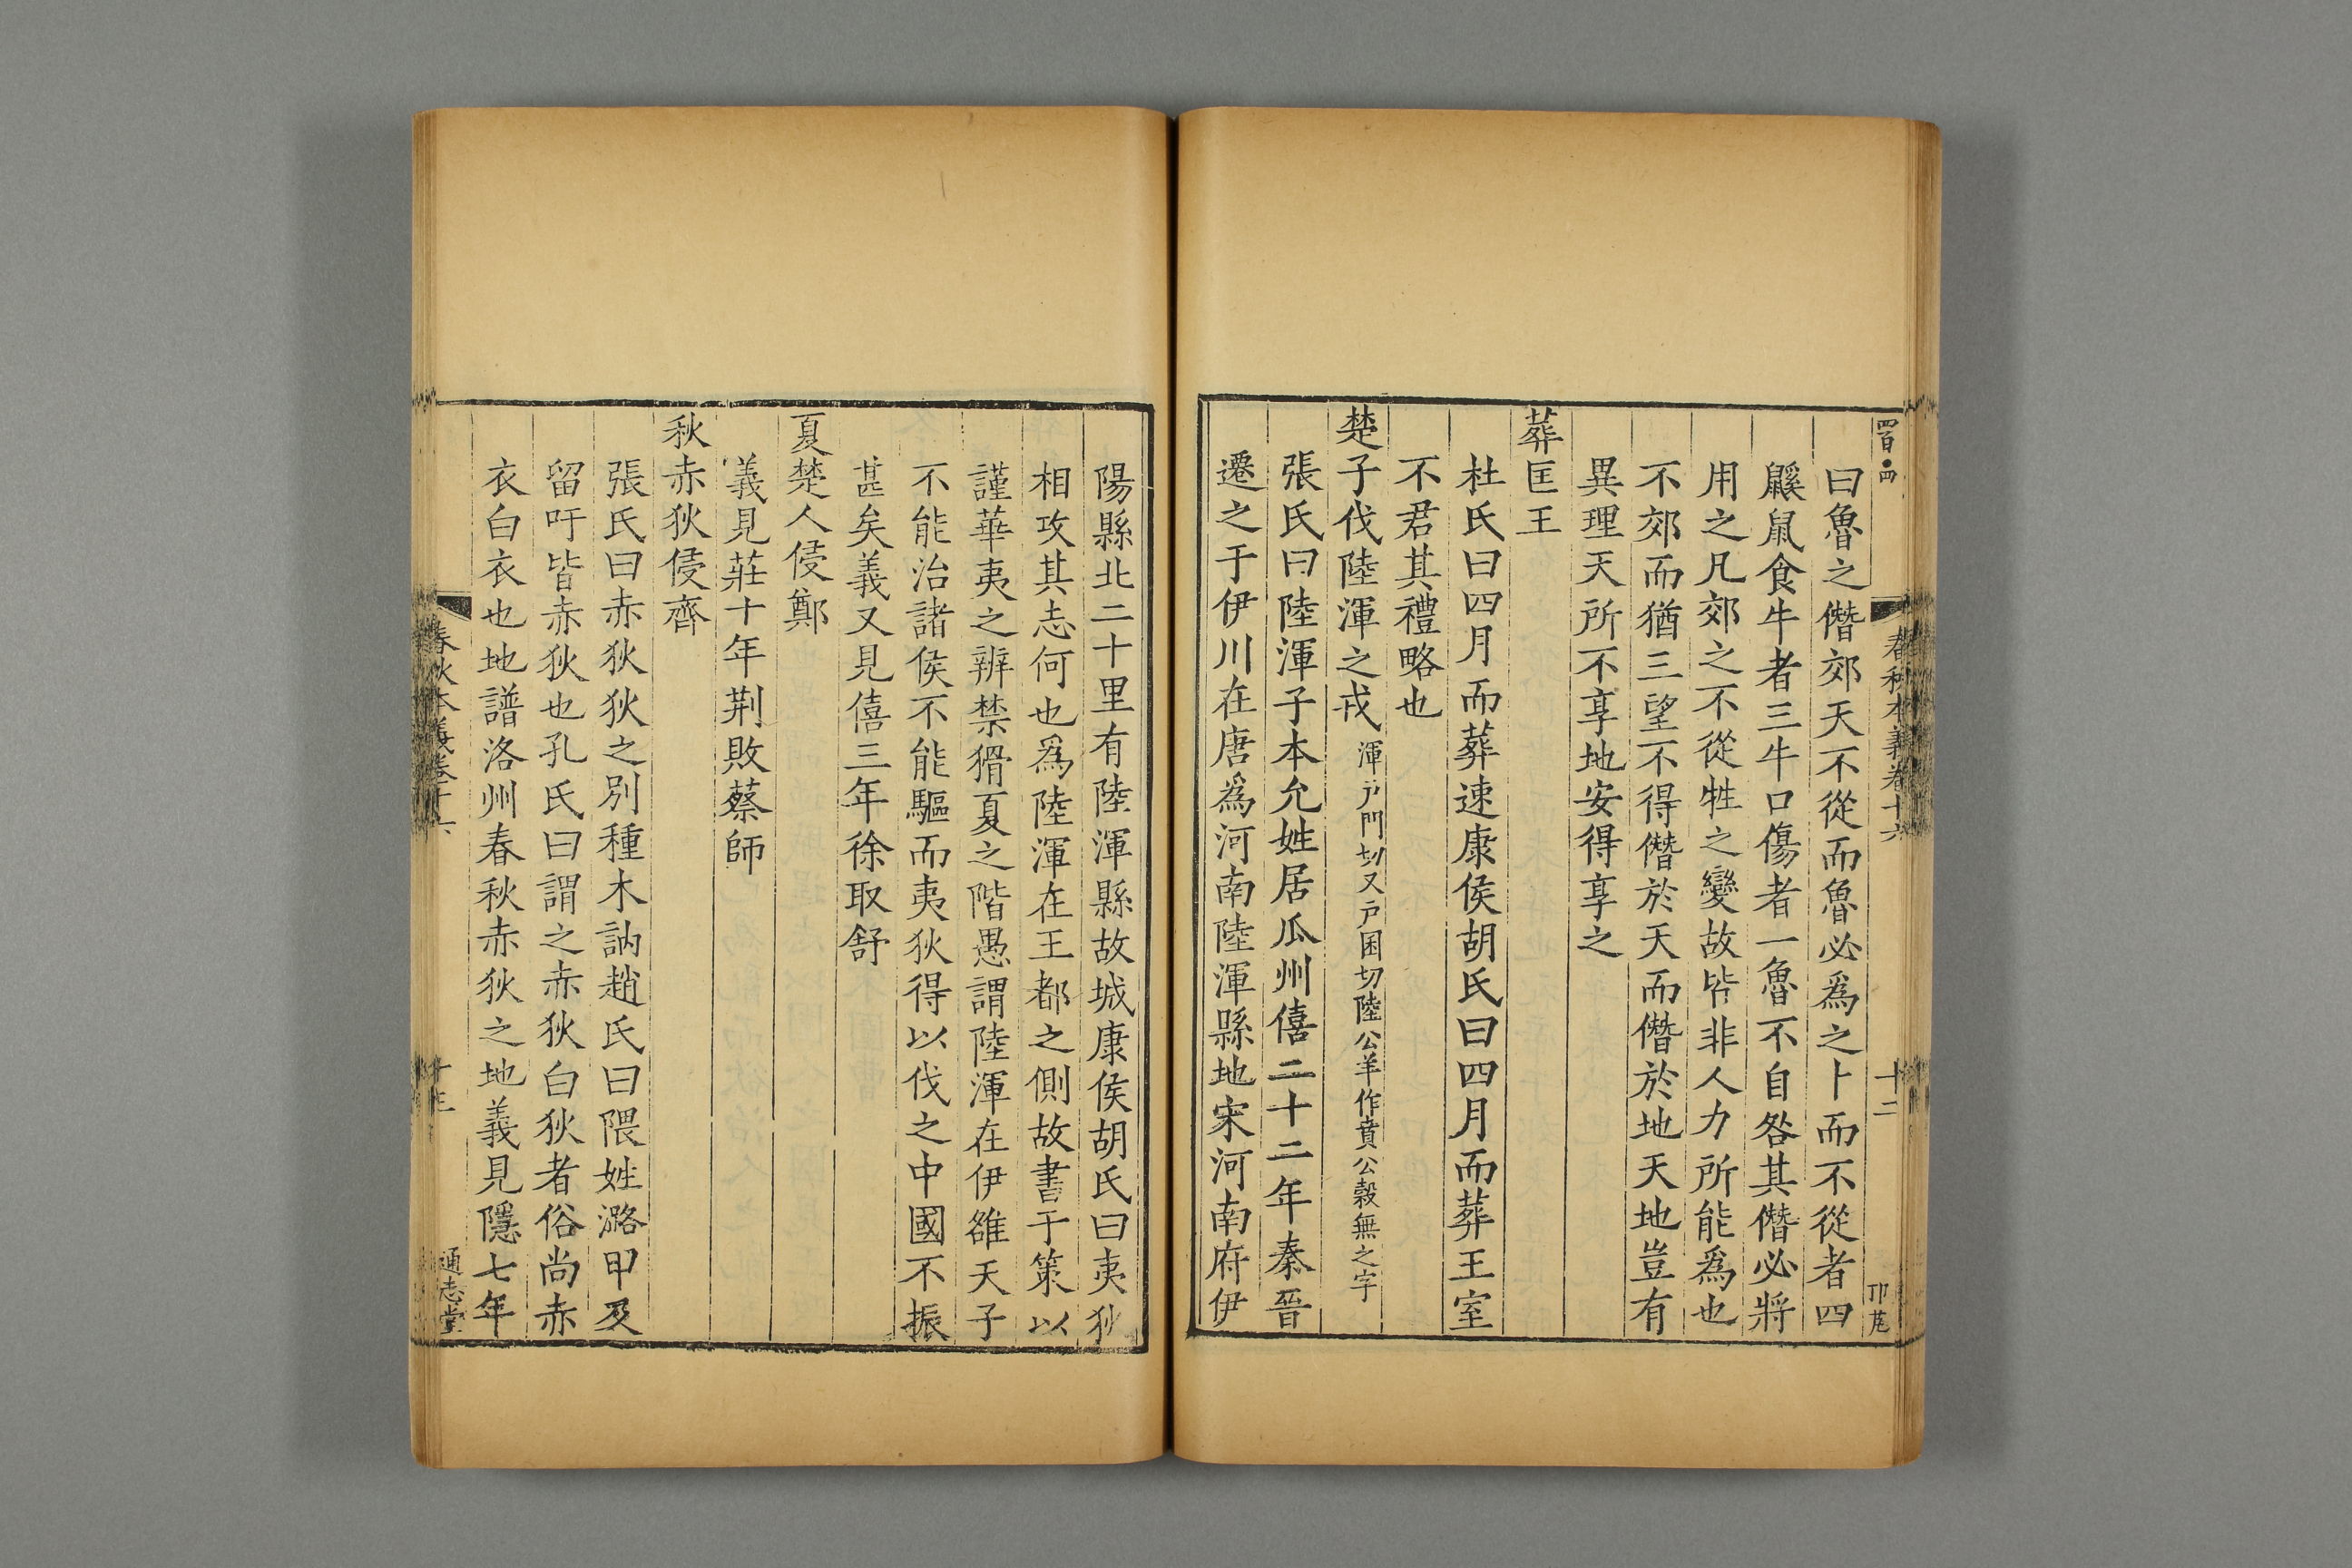 四百四
春秋本義卷十六
十二
曰魯之僭郊天不從而魯必爲之卜而不從者四
鼷鼠食牛者三牛口傷者一魯不自咎其僭必將
用之凡郊之不從牲之變故皆非人力所能爲也
不郊而猶三望不得僭於天而僭於地天地豈有
異理天所不享地安得享之
葬匡王
杜氏曰四月而葬速康侯胡氏曰四月而葬王室
不君其禮略也
楚子伐陸渾之戎渾戶門切又戶困切陸公羊作賁公穀無之字
張氏曰陸渾子本允姓居瓜州僖二十二年秦晉
遷之于伊川在唐爲河南陸渾縣地宋河南府伊
陽縣北二十里有陸渾縣故城康侯胡氏曰夷狄
相攻其志何也爲陸渾在王都之側故書于策以
謹華夷之辨禁猾夏之階愚謂陸渾在伊雒天子
不能治諸侯不能驅而夷狄得以伐之中國不振
甚矣義又見僖三年徐取舒
夏楚人侵鄭
義見莊十年荆敗蔡師
秋赤狄侵齊
張氏曰赤狄狄之别種木訥趙氏曰隗姓潞甲及
留吁皆赤狄也孔氏曰謂之赤狄白狄者俗尚赤
衣白衣也地譜洛州春秋赤狄之地義見隱七年
春秋本義卷十六
十三
通志堂